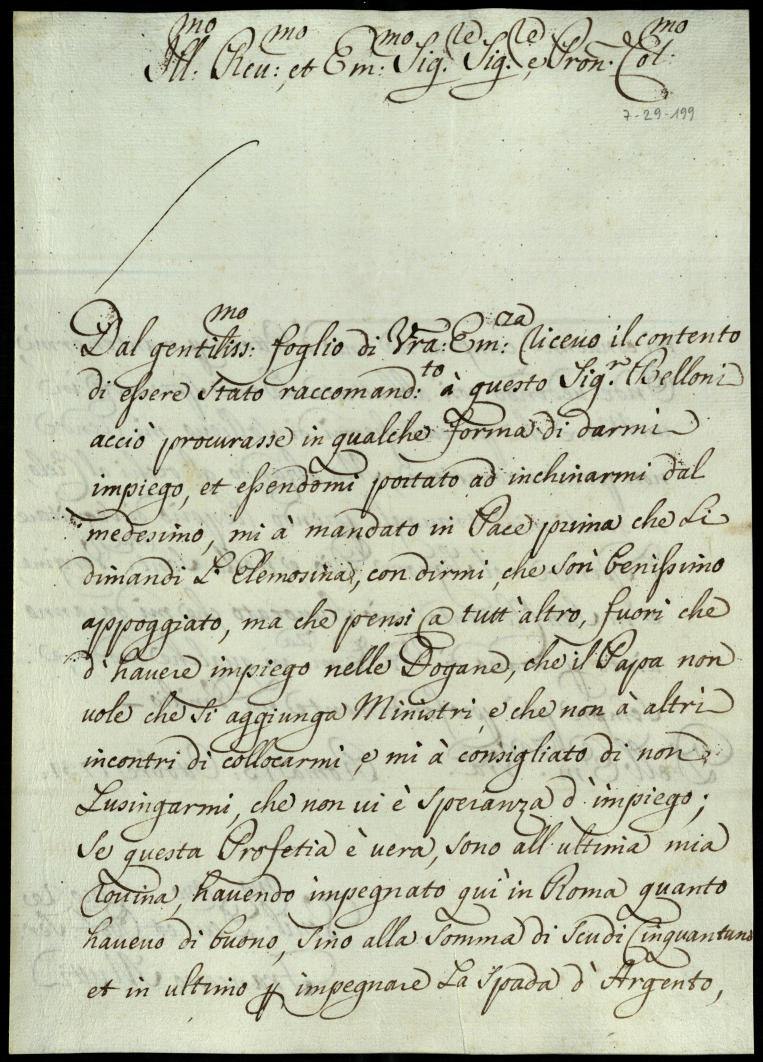 Ill:mo Reu:mo et Em:mo Sig:re Sig:re e Pron: Col:mo
7-29-199
Dal gentiliss:mo foglio di Vra: Em:cza riceuo il contento
di essere stato raccomand:to à questo Sig:r Belloni
acciò procurasse in qualche forma di darmi
impiego, et essendomi portato ad inchinarmi dal
medesimo, mi à mandato in Pace prima che Li
dimandi L'Elemosina, con dirmi, che sori benissimo
appoggiato, ma che pensi a tutt'altro, fuori che
d'hauere impiego nelle Dogane, che il Papa non
uole che si aggiunga Ministri, e che non à altri
incontri di collocarmi, e mi à consigliato di non
Lusingarmi, che non ui è speranza d'impiego;
se questa Profetia è uera, sono all'ultima mia
rouina, hauendo impegnato quì in Roma quanto
haueuo di buono, sino alla somma di scudi Cinquantuno
et in ultimo p impegnare La spada d'Argento,